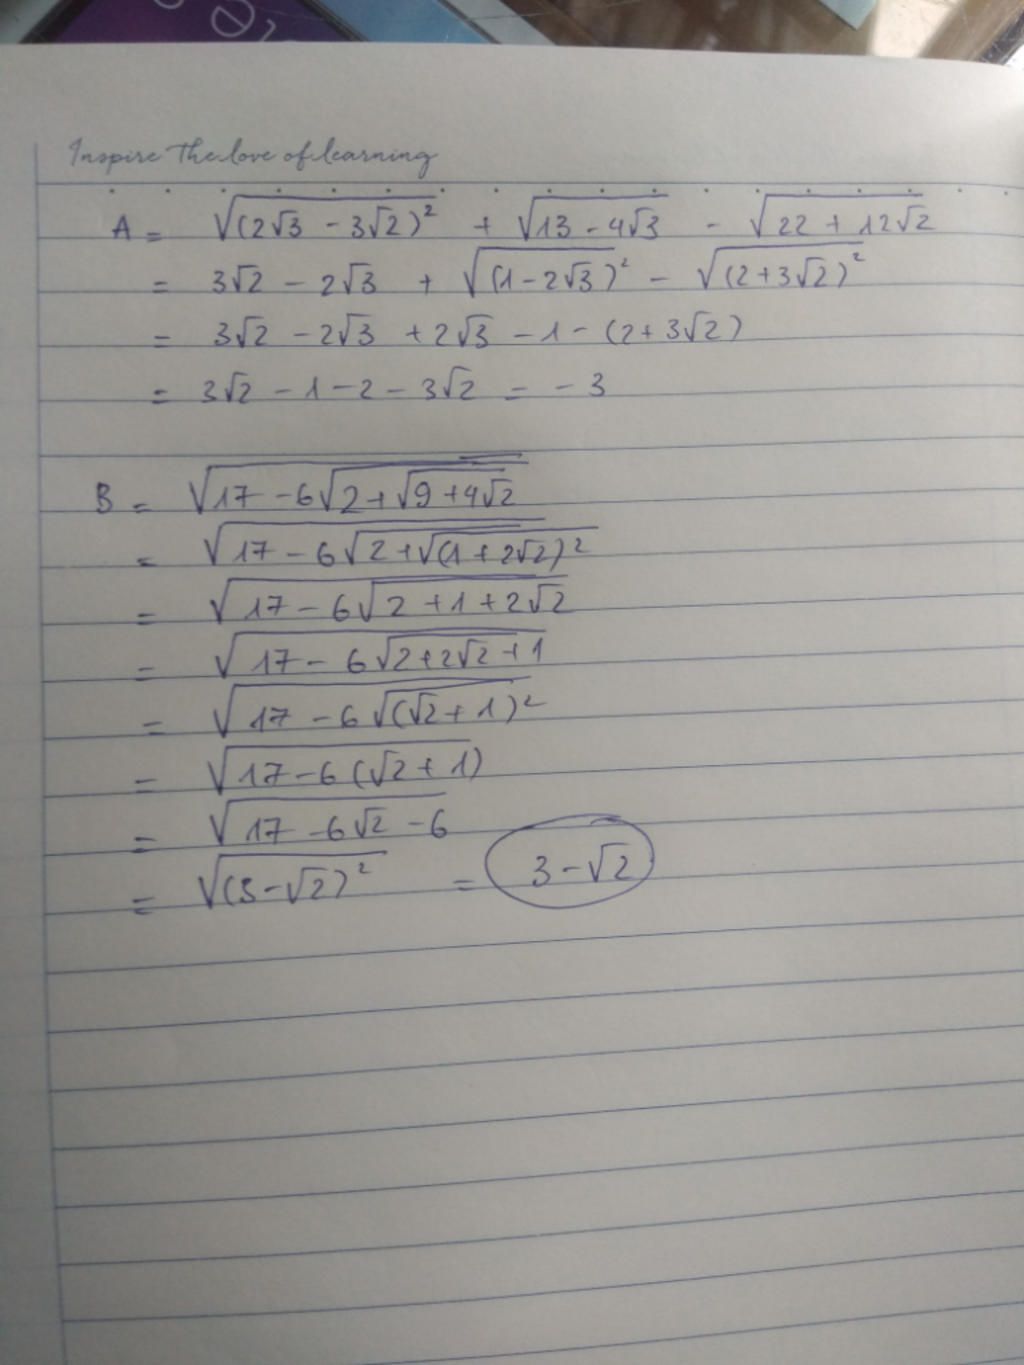 Inspire the love of learning
A = √((2√3 - 3√2)²) + √(13 - 4√3) - √(22 + 12√2)
= 3√2 - 2√3 + √((1 - 2√3)²) - √((2 + 3√2)²)
= 3√2 - 2√3 + 2√3 - 1 - (2 + 3√2)
= 3√2 - 1 - 2 - 3√2 = - 3
B = √(17 - 6√(2 + √(9 + 4√2)))
= √(17 - 6√(2 + √((1 + 2√2)²)))
= √(17 - 6√(2 + 1 + 2√2))
= √(17 - 6√(2 + 2√2 + 1))
= √(17 - 6√((√2 + 1)²))
= √(17 - 6(√2 + 1))
= √(17 - 6√2 - 6)
= √((3 - √2)²) = 3 - √2